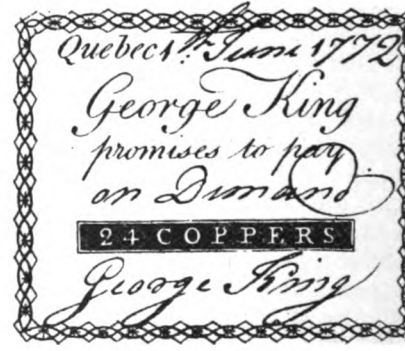 Quebec 1th June 1772
George King
promises to pay
on Dimand
24 COPPERS
George King